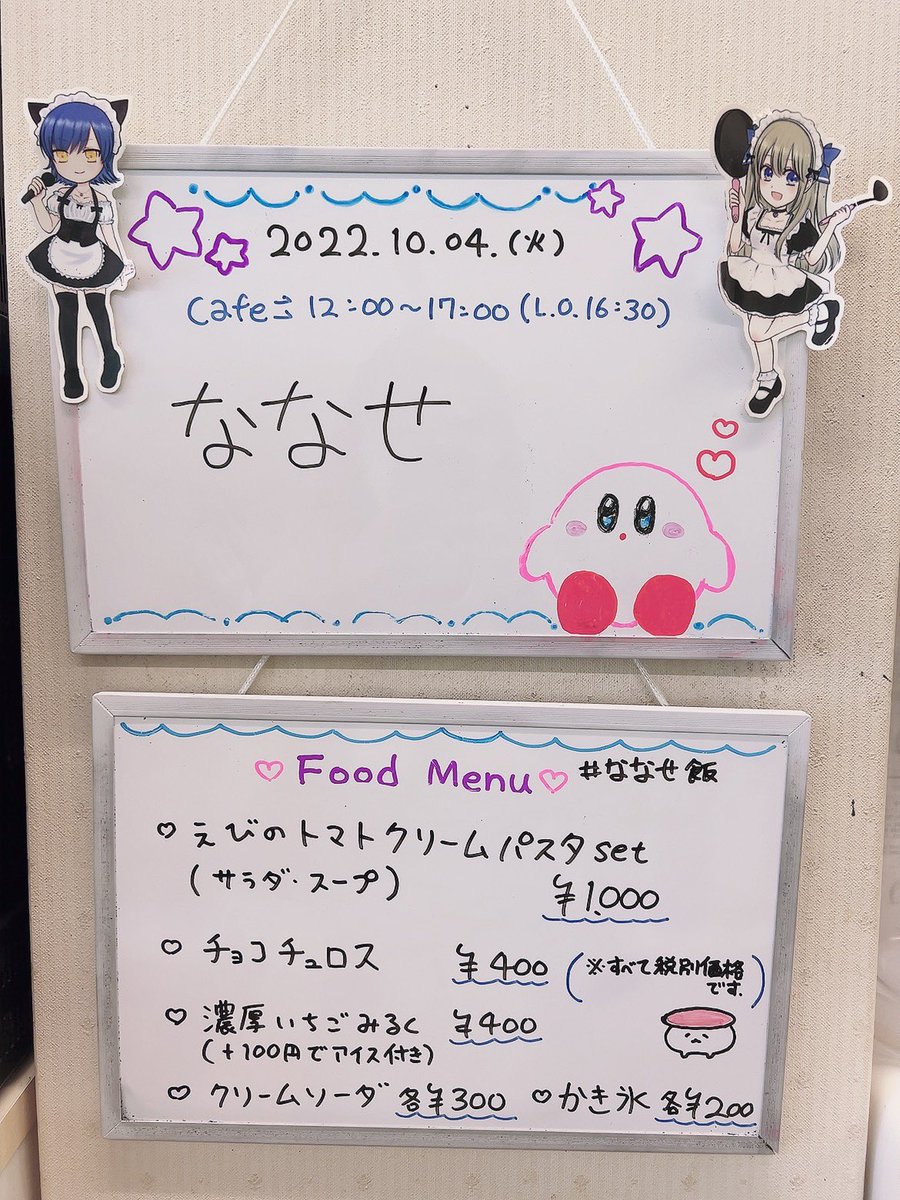 2022.10.04.(火)
Cafe⇒ 12:00～17:00 (L.O.16:30)
ななせ
Food Menu #ななせ飯
えびのトマトクリームパスタset
(サラダ・スープ)
¥1,000
チョコチュロス ¥400 (※すべて税別価格
です。)
濃厚いちごみるく ¥400
(+100円でアイス付き)
クリームソーダ 各¥300 かき氷 各¥200